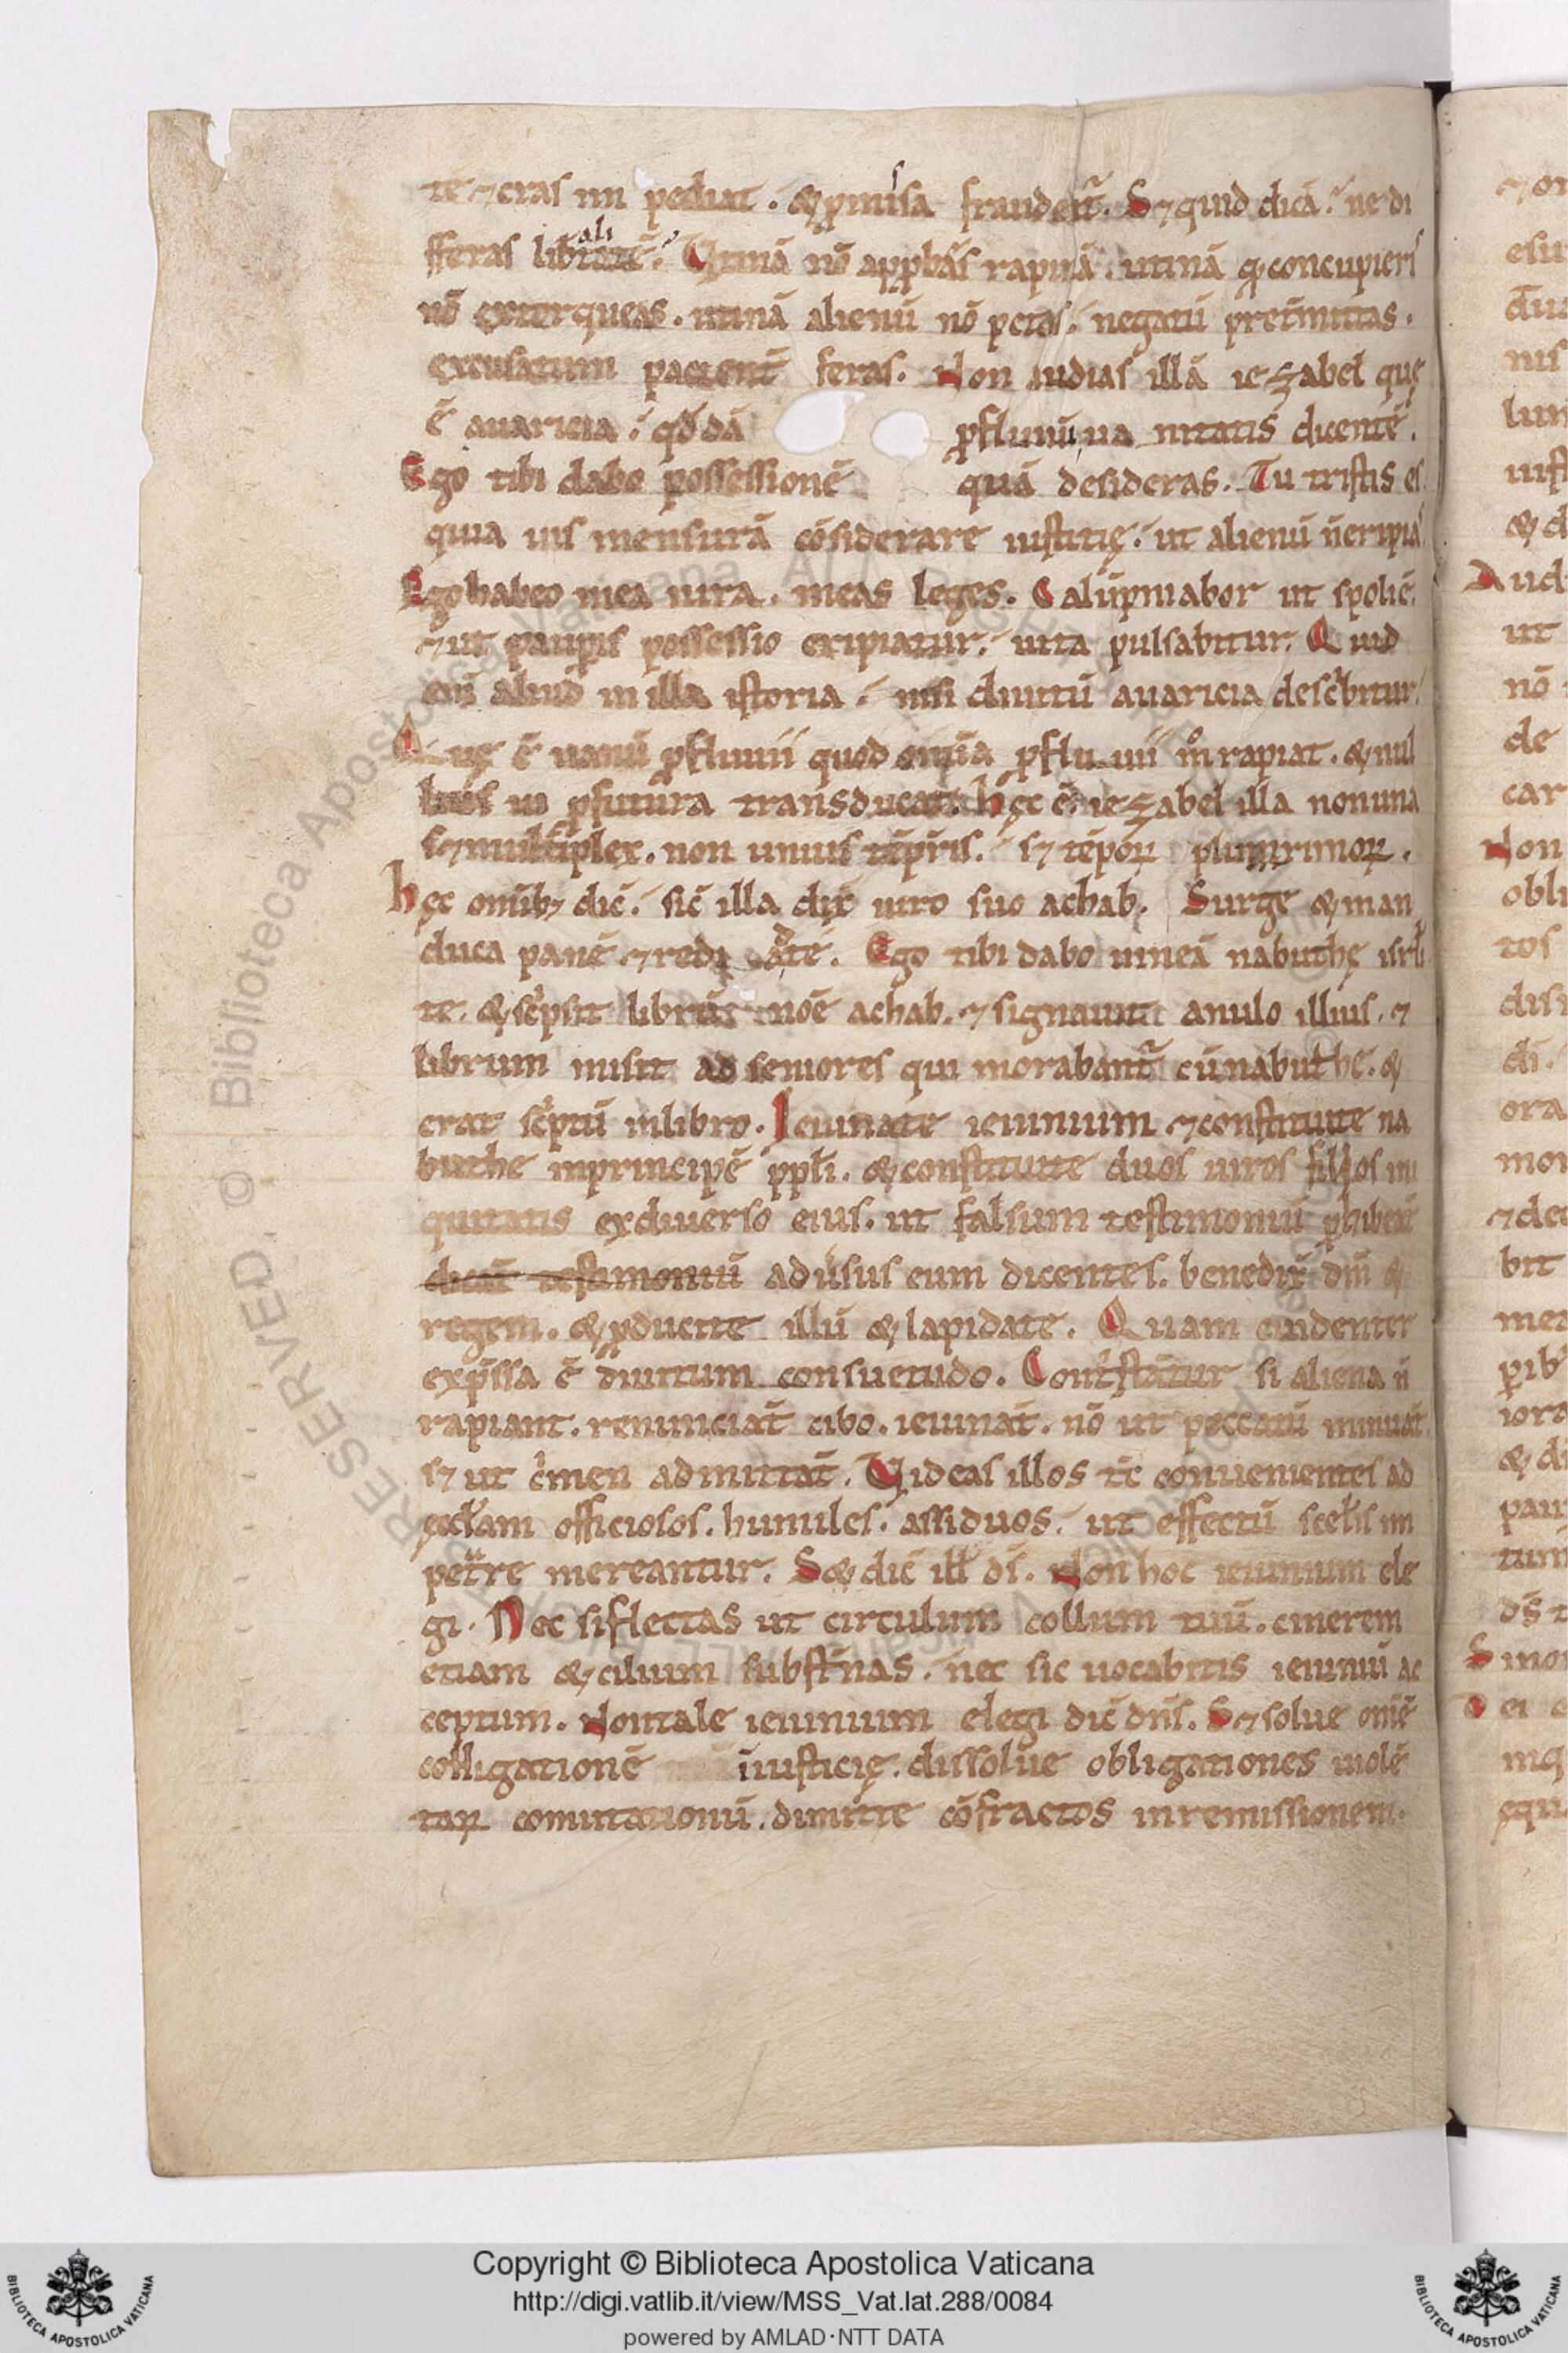 tē ⁊ cras im pediat. & p̱misa fraudeť. S⁊ quid dicā. ne di
fferas libtatē. Utinā nō appbās rapinā. utinā q̱ concupieris
nō extorqueas. utinā alienū nō petas. negatū pret̄mittas.
excusatum pacient̄ feras. Non audias illā iezabel quę
ē auaricia. qđdā p̱fluuiū ua nitatis dicentē.
Ego tibi dabo possessionē quā desideras. Tu tristis es
quia uis mensurā cōsiderare iustitię. ut alienū n̄ eripias
Ego habeo mea iura. meas leges. Calūpniabor ut spoliē.
⁊ ut paup̱is possessio eripiatur. uita pulsabitur. Quid
eni aliud in illa istoria. nisi diuitū auaricia descbitur.
Quę ē uanū p̱fluuii quod om̄ia p̱flu uii m̊ rapiat. & nul
luis in p̱futura transducat. hęc ē iezabel illa non una
s⁊ multiplex. non unius tēp̄ris. s⁊ tēpoꝝ plurimoꝝ.
hęc omib; dic̄. sic̄ illa dix̄ uiro suo achab. Surge & man
duca panē ⁊ redi ad te. Ego tibi dabo uineā nabuthę isrłi
te. & sc̄psit librū noē achab. ⁊ signauit anulo illius. ⁊
librum misit ad seniores qui morabanť cū nabuthe. &
erat sc̄ptū in libro. Ieiunate ieiunium ⁊ constituite na
buthe in principē ppłi. & constituite duos uiros filios ini
quitatis ex diuerso eius. ut falsum testimoniū p̱hibeāt
dicāt testimoniū adūsus eum dicentes. benedix̄ dm̄ &
regem. & p̱ducite illū & lapidate. Quam euidenter
exp̄ssa ē diuitum consuetudo. Contstātur si aliena n̄
rapiant. renunciāt cibo. ieiunāt. nō ut peccatū minuāt
s⁊ ut c̄men admittāt. Uideas illos tc̄ conuenientes ad
ęccłam officiosos. humiles. assiduos. ut effectū scełis im
petre mereantur. S& dic̄ ill ds̄. Non hoc ieiunium ele
gi. Nec si flectas ut circulum collum tuū. cinerem
etiam & cilium subst̄nas. nec sic uocabitis ieiuniū ac
ceptum. Non tale ieiunium elegi dic̄ dn̄s. S⁊ solue om̄ē
colligationē iniusticię. dissolue obligationes uiolē
taꝝ comutationū. dimitte cōfractos in remissionem.
Copyright © Biblioteca Apostolica Vaticana
http://digi.vatlib.it/view/MSS_Vat.lat.288/0084
powered by AMLAD·NTT DATA